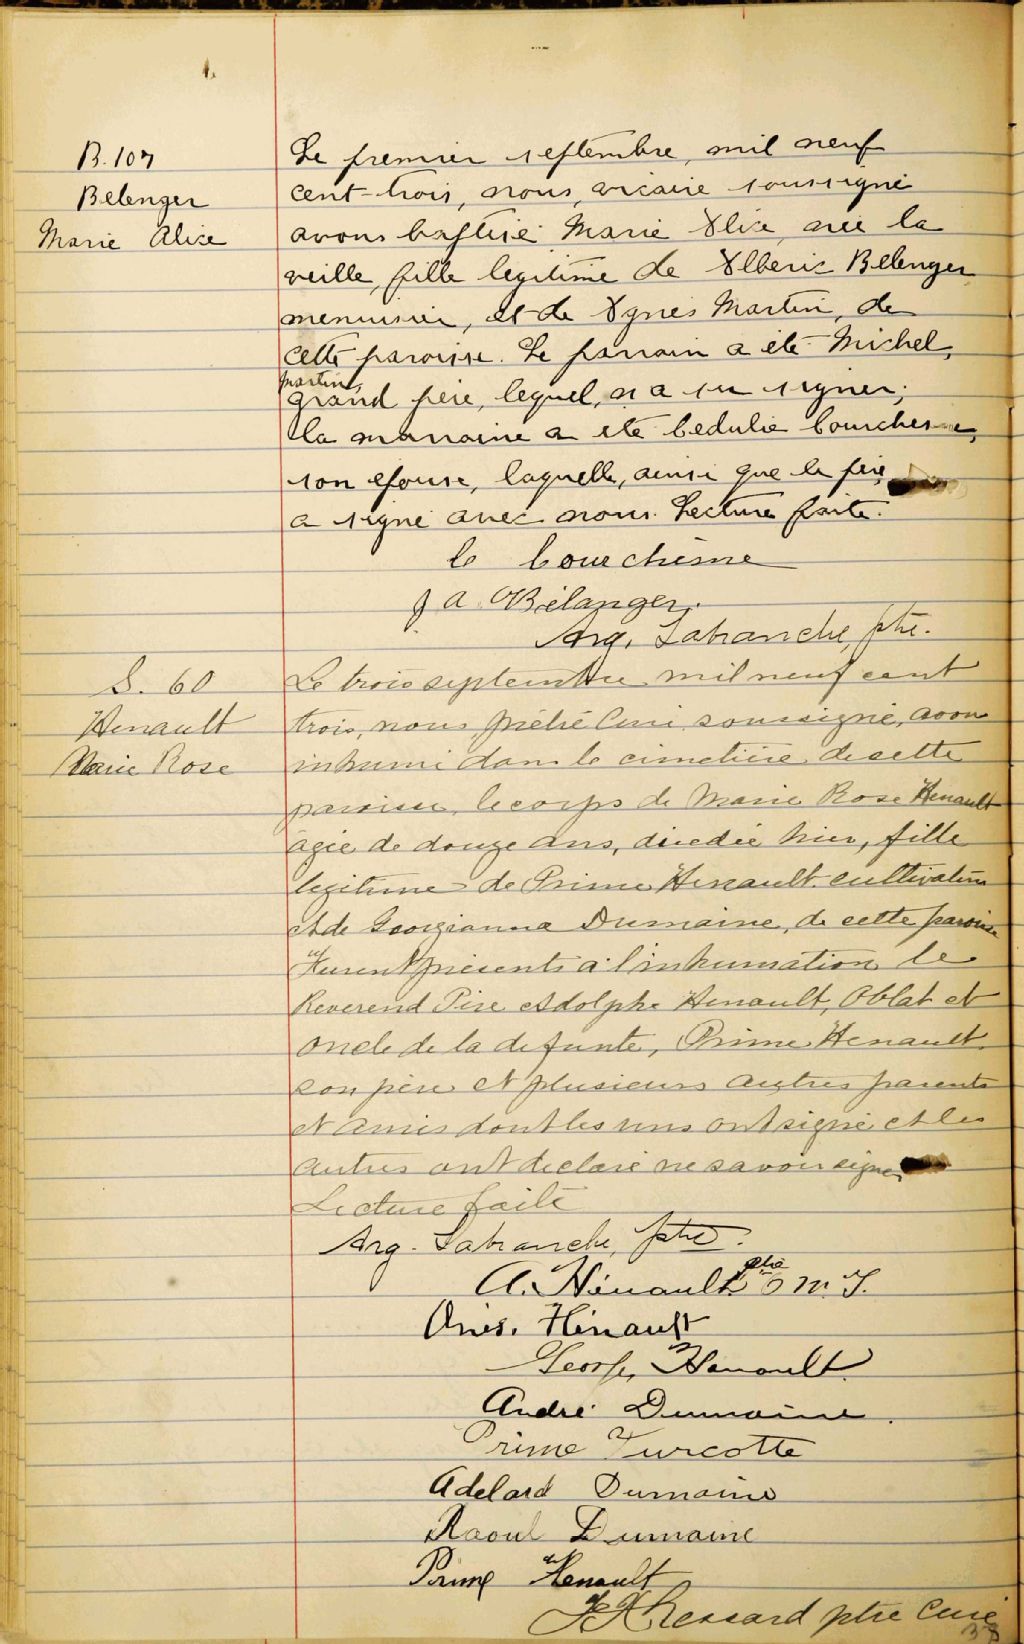 B. 107
Belenger
Marie Alice
Le premier septembre, mil neuf
cent-trois, nous, vicaire soussigné
avons baptisé Marie Alice, née la
veille, fille legitime de Alberic Belenger
menuisier, et de Agnès Martin, de
cette paroisse. Le parrain a été Michel,
Martin,
grand père, lequel, n'a su signer;
la marraine a été Cedulie Courchesne,
son épouse, laquelle, ainsi que le père
a signé avec nous. Lecture faite.
C Courchesne
J A Bélanger.
Arg. Labranche, ptre.
S. 60
Henault
Marie Rose
Le trois septembre mil neuf cent
trois, nous, prêtre Curé soussigné, avons
inhumé dans le cimetière de cette
paroisse, le corps de Marie Rose Henault
agée de douze ans, décédée hier, fille
legitime de Prime Henault cultivateur
et de Georgianna Dumaine, de cette paroisse
Furent présents à l'inhumation le
Reverend Père Adolphe Henault, Oblat et
oncle de la defunte, Prime Henault
son père et plusieurs autres parents
et amis dont les uns ont signé et les
autres ont declaré ne savoir signer
Lecture faite
Arg. Labranche, ptre.
A. Hénault ptre O M. I.
Onés. Hénault
George Henault
André Dumaine.
Prime Turcotte
Adelard Dumaine
Raoul Dumaine
Prime Henault
ptre Curé